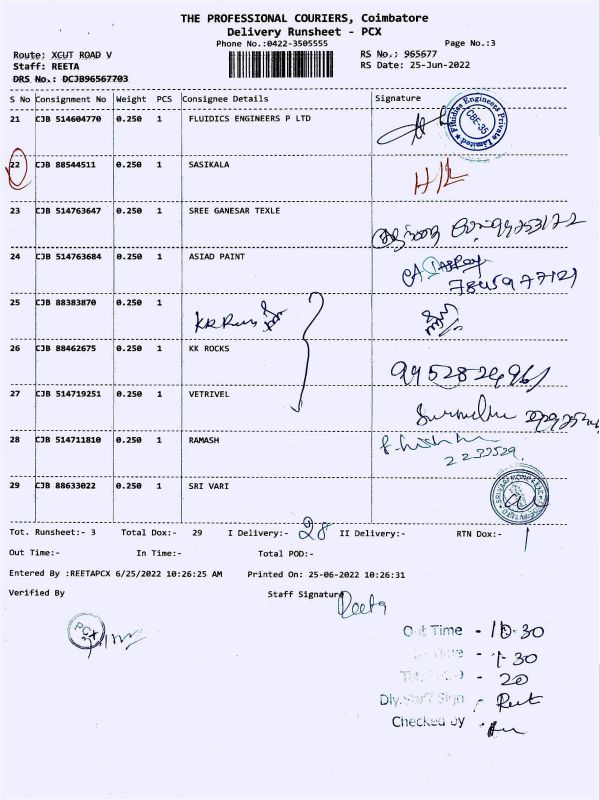 THE PROFESSIONAL COURIERS, Coimbatore
Delivery Runsheet - PCX
Phone No.:0422-3505555
Page No.:3
Route: XCUT ROAD V
RS No.: 965677
Staff: REETA
RS Date: 25-Jun-2022
DRS No.: DCJB96567703
S No Consignment No Weight PCS Consignee Details Signature
21 CJB 514604770 0.250 1 FLUIDICS ENGINEERS P LTD
Fluidics Engineers Private Limited CBE-35
22 CJB 88544511 0.250 1 SASIKALA
23 CJB 514763647 0.250 1 SREE GANESAR TEXLE
24 CJB 514763684 0.250 1 ASIAD PAINT
7845977121
25 CJB 88383870 0.250 1
26 CJB 88462675 0.250 1 KK ROCKS
27 CJB 514719251 0.250 1 VETRIVEL
28 CJB 514711810 0.250 1 RAMASH
2233529
29 CJB 88633022 0.250 1 SRI VARI
Tot. Runsheet:- 3 Total Dox:- 29 I Delivery:- 28 II Delivery:- RTN Dox:- 1
Out Time:- In Time:- Total POD:-
Entered By :REETAPCX 6/25/2022 10:26:25 AM Printed On: 25-06-2022 10:26:31
Verified By Staff Signature Reeta
PCX
Out Time - 10-30
- 1-30
- 20
Dly. Staff Sign - Reet
Checked by